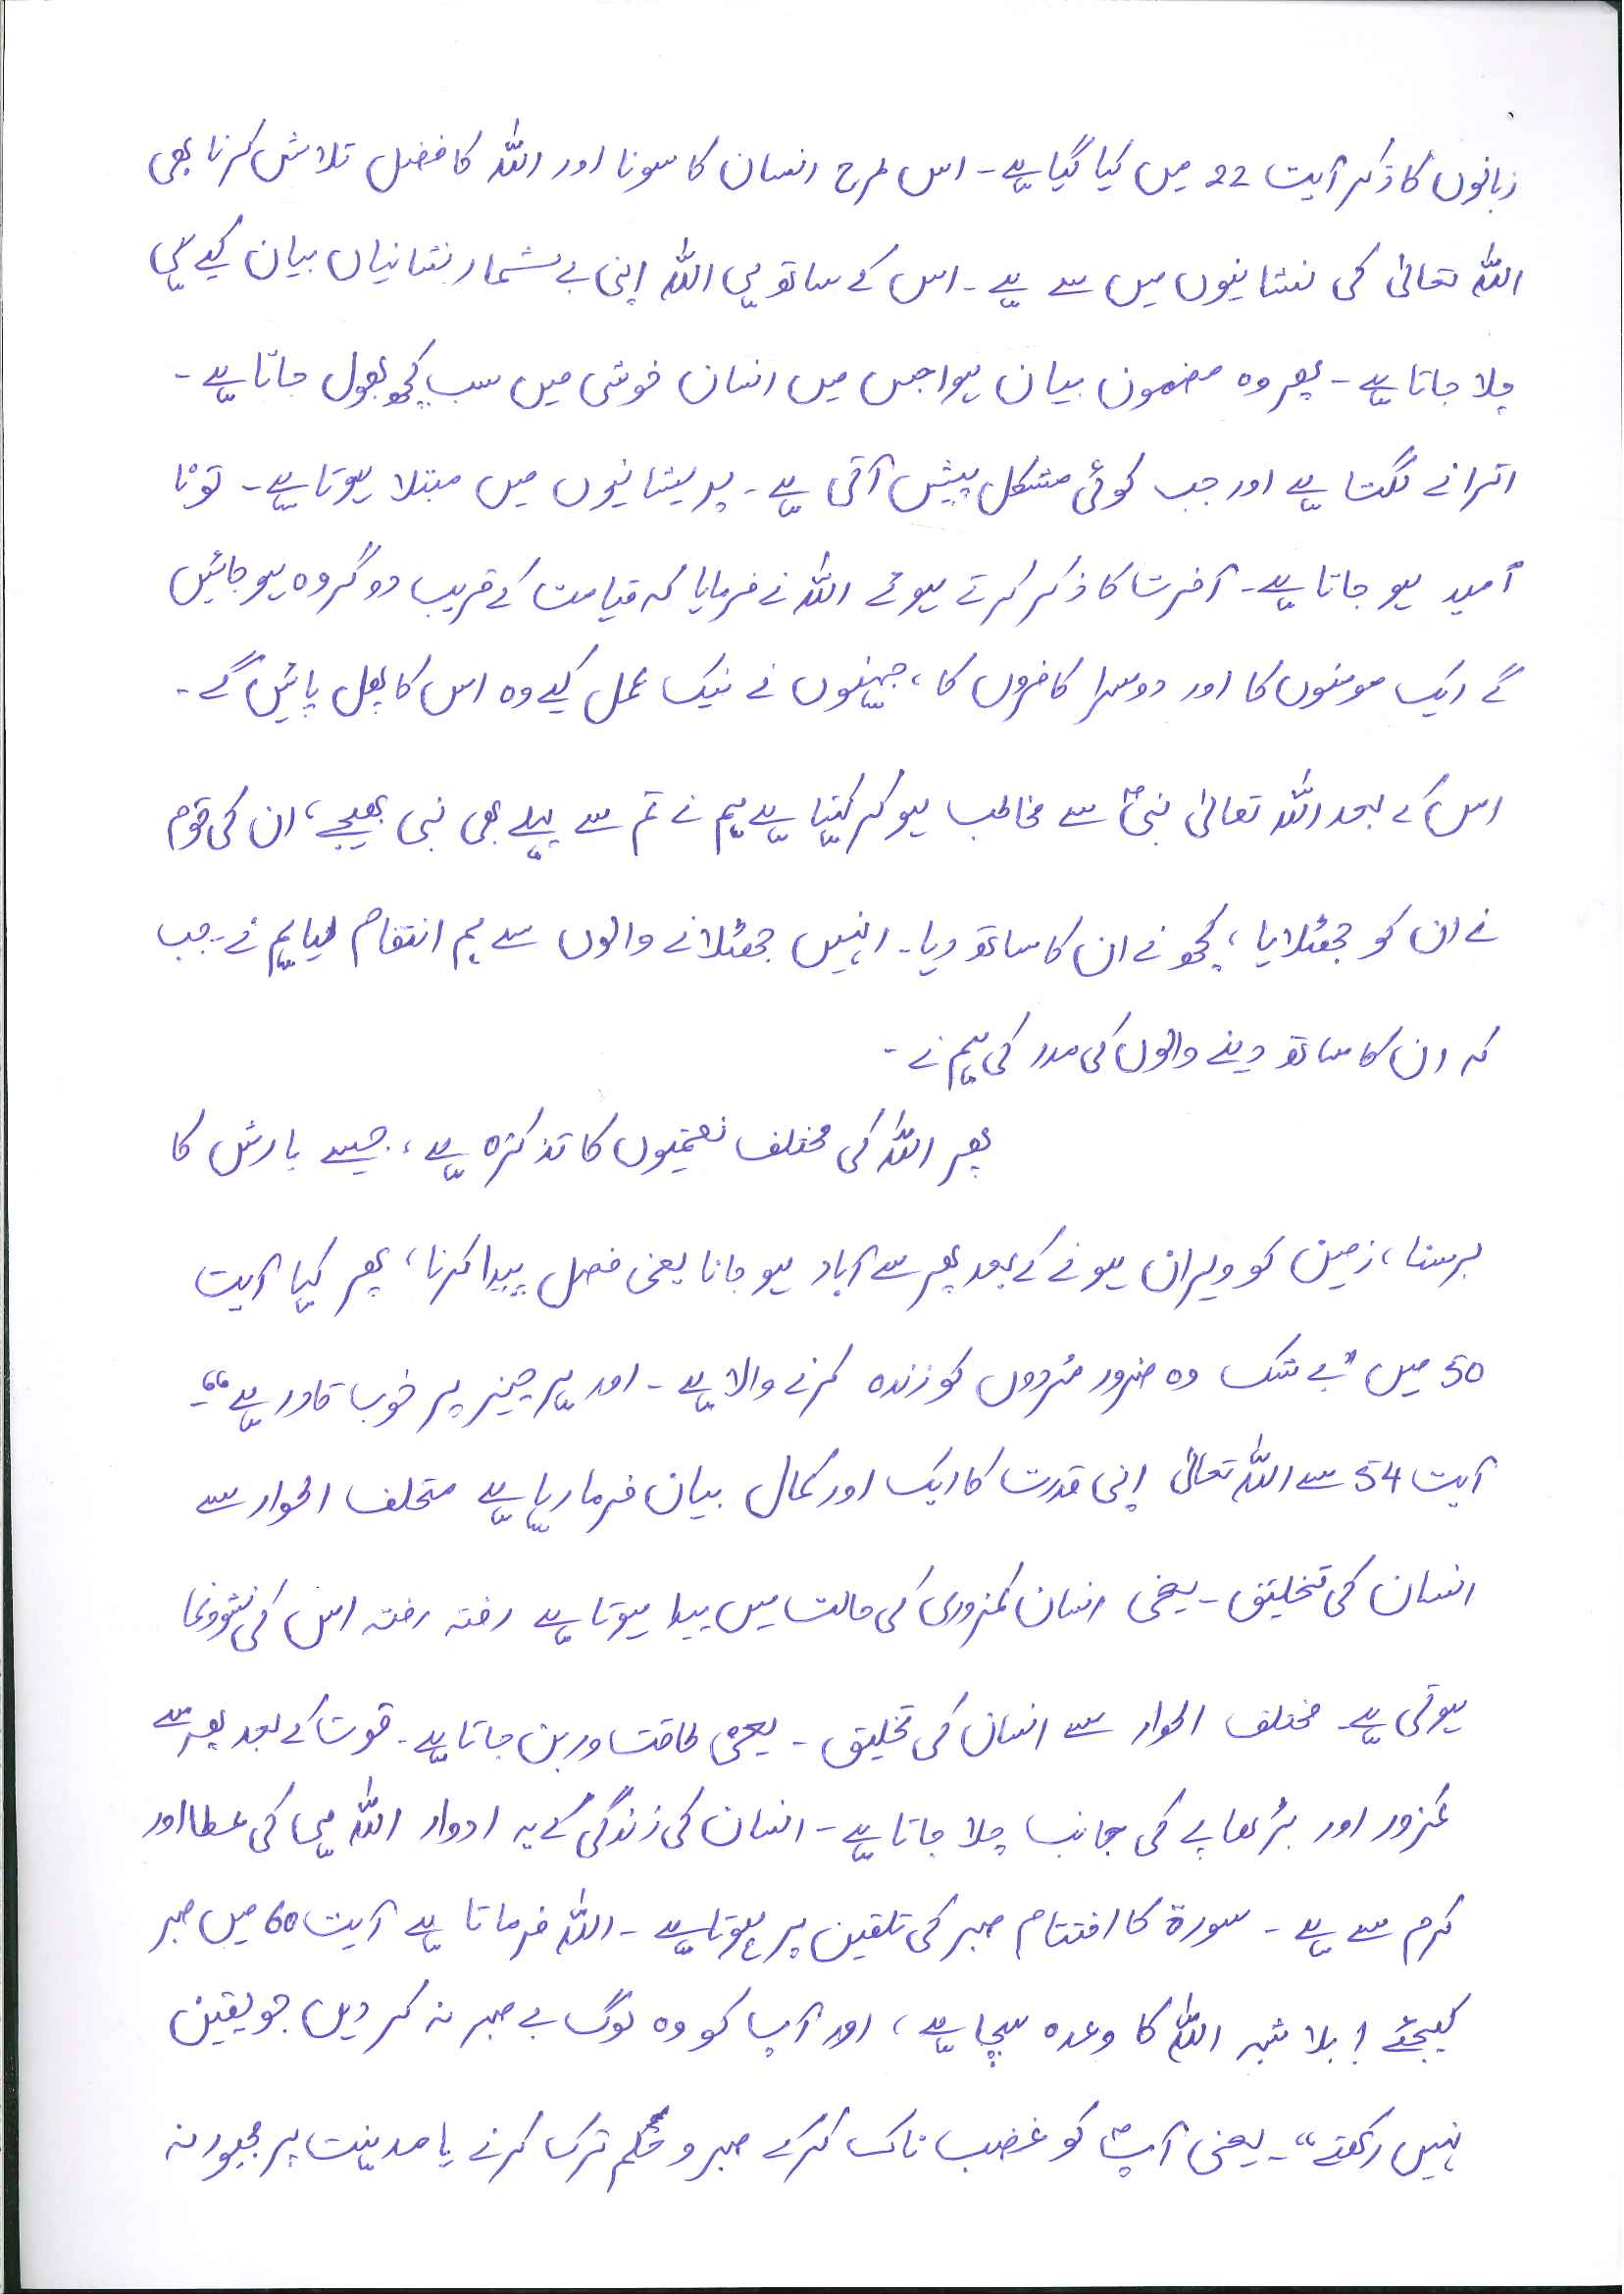 زبانوں کا ذکر آیت 22 میں کیا گیا ہے۔ اس طرح انسان کا سونا اور اللہ کا فضل تلاش کرنا بھی
اللہ تعالیٰ کی نشانیوں میں سے ہے۔ اس کے ساتھ ہی اللہ اپنی بے شمار نشانیاں بیان کیے ہی
چلا جاتا ہے۔ پھر وہ مضمون بیان ہوا جس میں انسان خوشی میں سب کچھ بھول جاتا ہے۔
اترانے لگتا ہے اور جب کوئی مشکل پیش آتی ہے۔ پریشانیوں میں مبتلا ہوتا ہے۔ تو نا
اُمید ہو جاتا ہے۔ آخرت کا ذکر کرتے ہوئے اللہ نے فرمایا کہ قیامت کے قریب دو گروہ ہو جائیں
گے ایک مومنوں کا اور دوسرا کافروں کا، جہنوں نے نیک عمل کیے وہ اس کا پھل پائیں گے۔
اس کے بعد اللہ تعالیٰ نبیؐ سے مخاطب ہو کر کہتا ہے ہم نے تم سے پہلے بھی نبی بھیجے، ان کی قوم
نے ان کو جھٹلایا، کچھ نے ان کا ساتھ دیا۔ انہیں جھٹلانے والوں سے ہم انتقام لیا ہم نے۔ جب
کہ ان کا ساتھ دینے والوں کی مدد کی ہم نے۔
پھر اللہ کی مختلف نعمتیوں کا تذکرہ ہے، جیسے بارش کا
برسنا، زمین کو ویران ہونے کے بعد پھر سے آباد ہو جانا یعنی فصل پیدا کرنا، پھر کہا آیت
50 میں "بے شک وہ ضرور مُردوں کو زندہ کرنے والا ہے۔ اور ہر چیز پر خوب قادر ہے"۔
آیت 54 سے اللہ تعالیٰ اپنی قدرت کا ایک اور کمال بیان فرما رہا ہے متحلف اطوار سے
انسان کی تخلیق۔ یعنی انسان کمزوری کی حالت میں پیدا ہوتا ہے رفتہ رفتہ اس کی نشوونما
ہوتی ہے۔ مختلف اطوار سے انسان کی تخلیق۔ یعنی طاقت ور بن جاتا ہے۔ قوت کے بعد پھر سے
کمزور اور بڑھاپے کی جانب چلا جاتا ہے۔ انسان کی زندگی کے یہ ادوار اللہ ہی کی عطا اور
کرم سے ہے۔ سورۃ کا اختتام صبر کی تلقین پر ہوتا ہے۔ اللہ فرماتا ہے آیت 60 میں صبر
کیجئے! بلا شبہ اللہ کا وعدہ سچا ہے، اور آپ کو وہ لوگ بے صبر نہ کر دیں جو یقین
نہیں رکھتے"۔ یعنی آپؐ کو غضب ناک کرکے صبر و حُلم ترک کرنے یا مدہنیت پر مجبور نہ